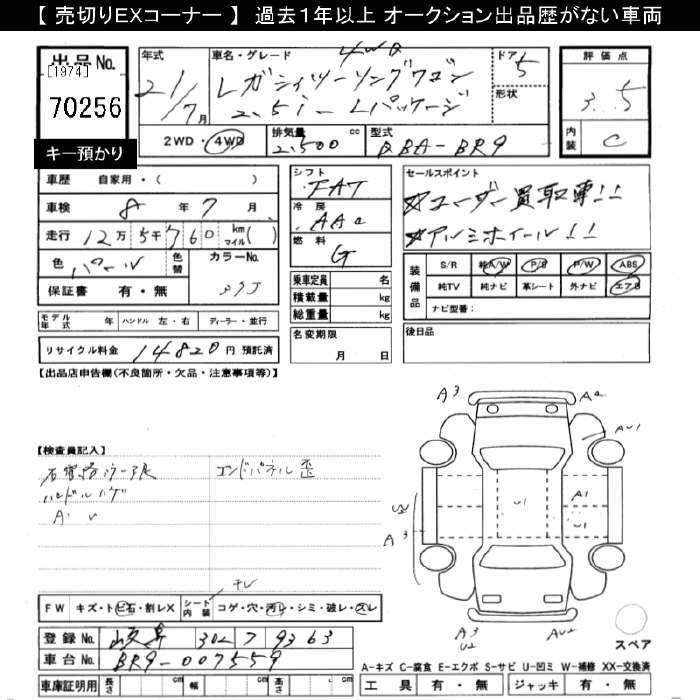 【 売切りEXコーナー 】 過去１年以上 オークション出品歴がない車両
出品No.
[1974]
70256
キー預かり
年式
21/7月
車名・グレード
4WD
レガシィツーリングワゴン
2.5i-Lパッケージ
ドア
5
形状
評価点
3.5
内装
C
2WD・4WD
排気量
2,500 cc
型式
DBA-BR9
車歴 自家用・( )
車検 8年 7月
走行 12万 5千 760 km マイル ( )
色 パール
色替
カラーNo.
37J
保証書 有・無
モデル年式 年 ハンドル 左・右 ディーラー・並行
リサイクル料金 14820 円 預託済
シフト
FAT
冷房
AAC
燃料
G
乗車定員 名
積載量 kg
総重量 kg
名変期限
月 日
セールスポイント
☆ユーザー買取車!!
☆アルミホイール!!
装備品
S/R 純A/W P/S P/W ABS
純TV 純ナビ 革シート 外ナビ エアB
ナビ型番：
後日品
【出品店申告欄(不良箇所・欠品・注意事項等)】
【検査員記入】
エンドパネル歪
ハンドルハゲ
A3
A2
AU1
U1
A1
U2
A3
U1
A3
U2
AU2
スペア
FW キズ・トビ石・割レX
シート内装 コゲ・穴・汚レ・シミ・破レ・スレ
登録No. 岐阜 302 ﾌ 9363
車台No. BR9-007559
車庫証明用 長さ cm 幅 cm 高さ cm
A-キズ C-腐食 E-エクボ S-サビ U-凹ミ W-補修 XX-交換済
工具 有・無 ジャッキ 有・無